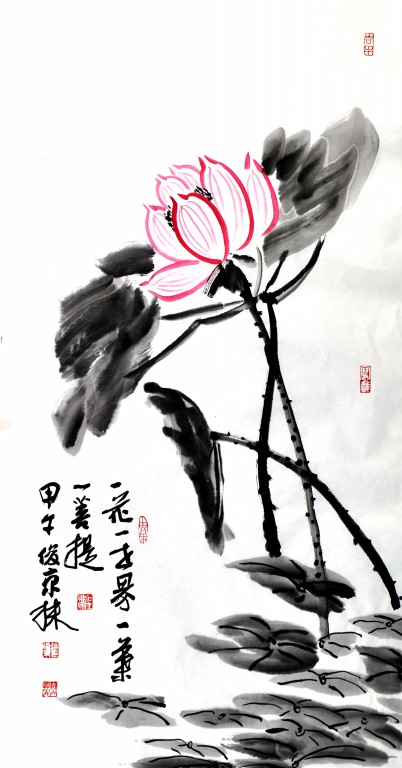 一花一世界一葉
一菩提
甲午俊京林